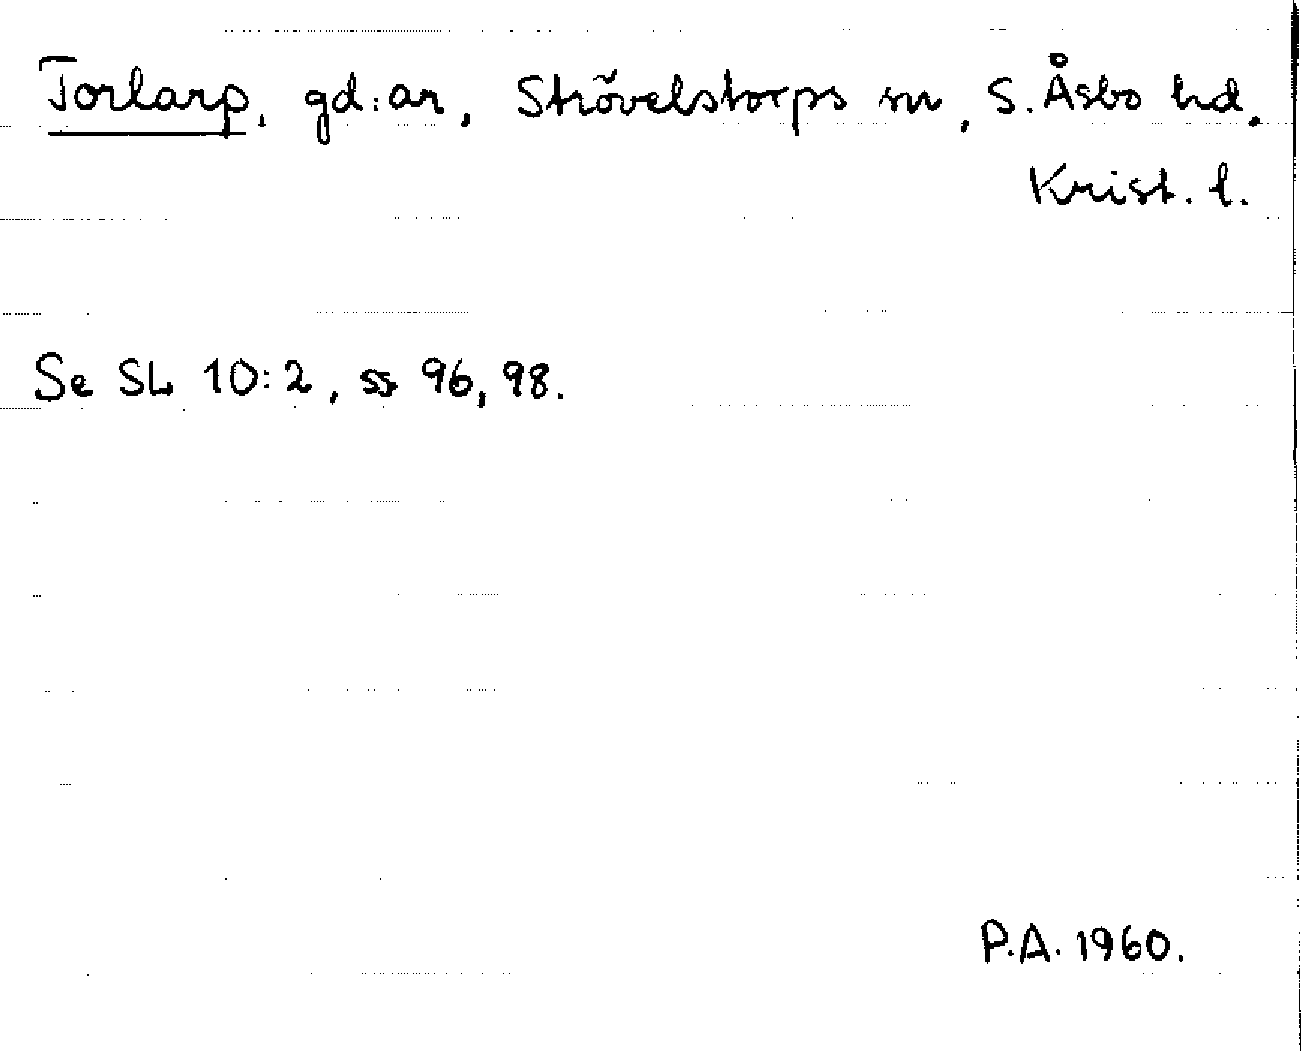 Torlarp, gd:ar, Strövelstorps sn, S. Åsbo hd.
Krist. l.
Se SL 10:2, ss 96, 98.
P.A. 1960.